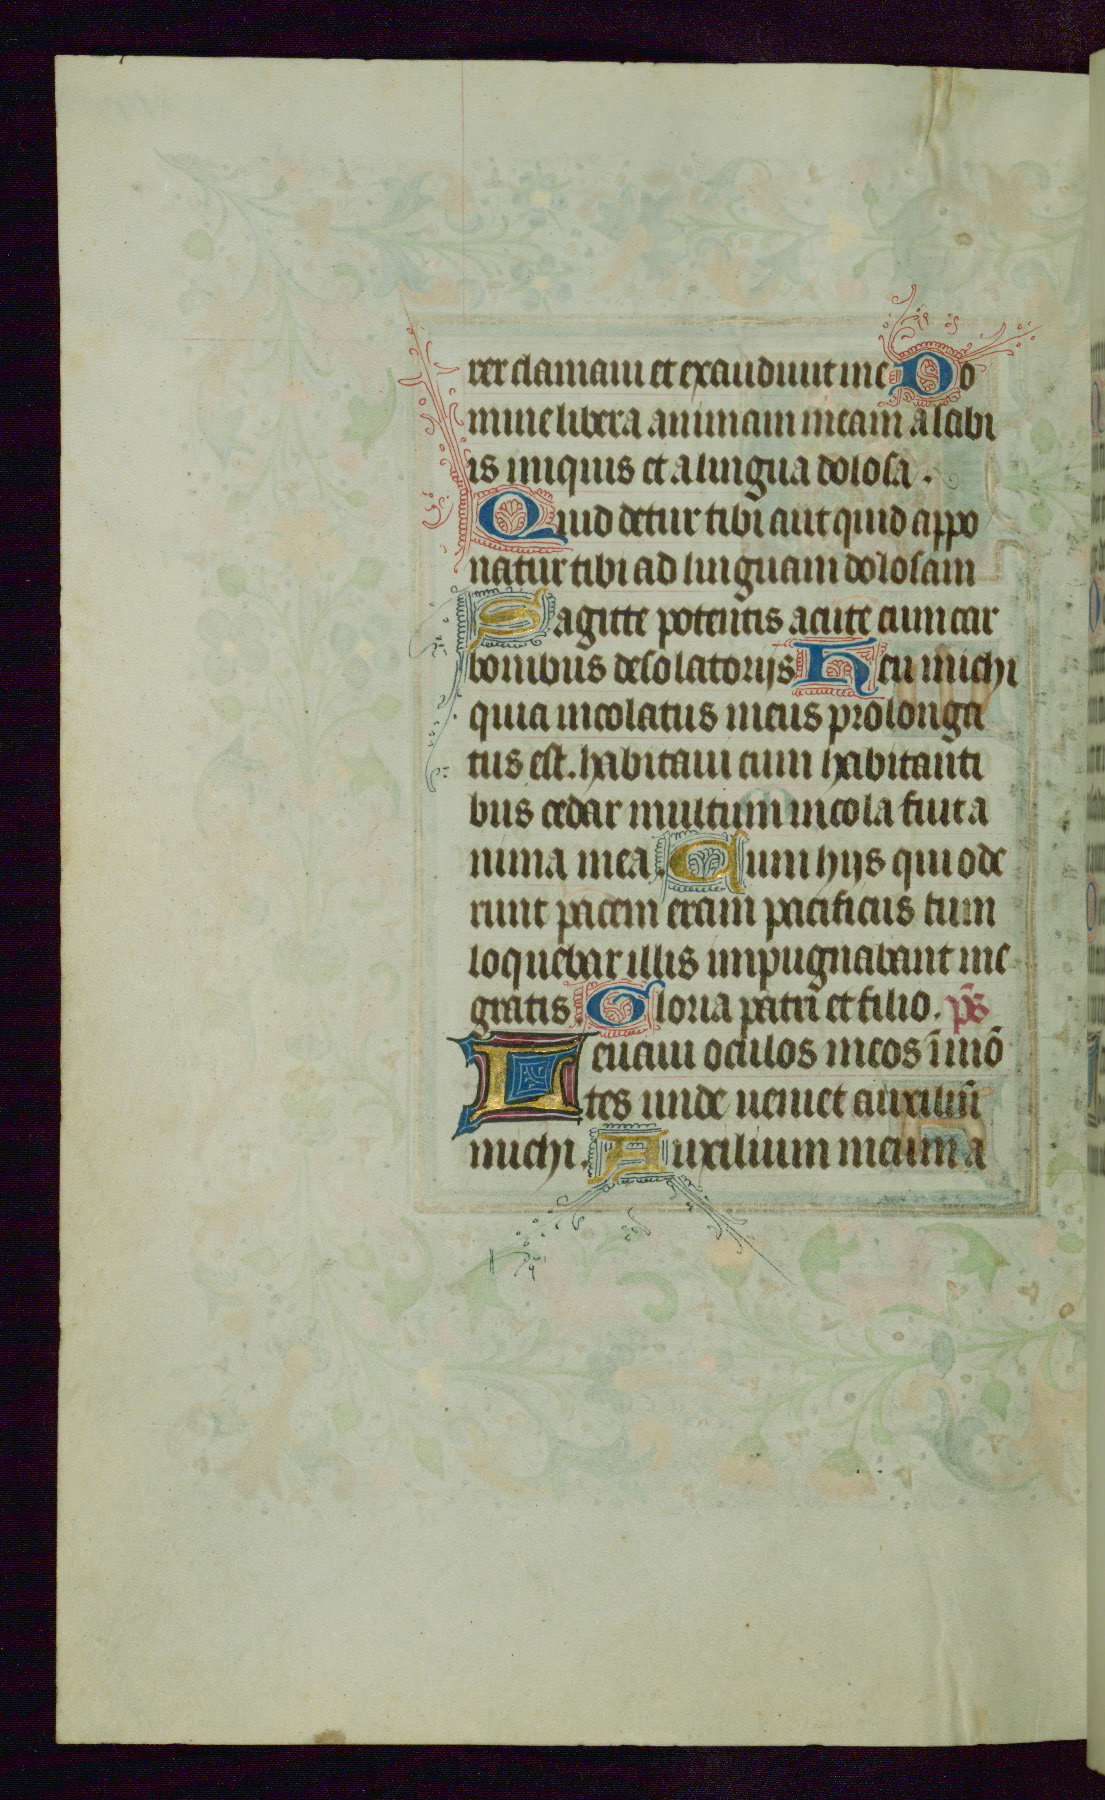 rer clamaui et exaudiuit me Do
mine libera animam meam a labi
is iniquis et a lingua dolosa.
Quid detur tibi aut quid appo
natur tibi ad linguam dolosam
Sagitte potentis acute cum car
bonibus desolatorijs Heu michi
quia incolatus meus prolonga
tus est. habitaui cum habitanti
bus cedar multum incola fuit a
nima mea. Cum hijs qui ode
runt pacem eram pacificus cum
loquebar illis impugnabant me
gratis. Gloria patri et filio. ps̄
Leuaui oculos meos ī mō
tes unde ueniet auxiliū
michi. Auxilium meum a